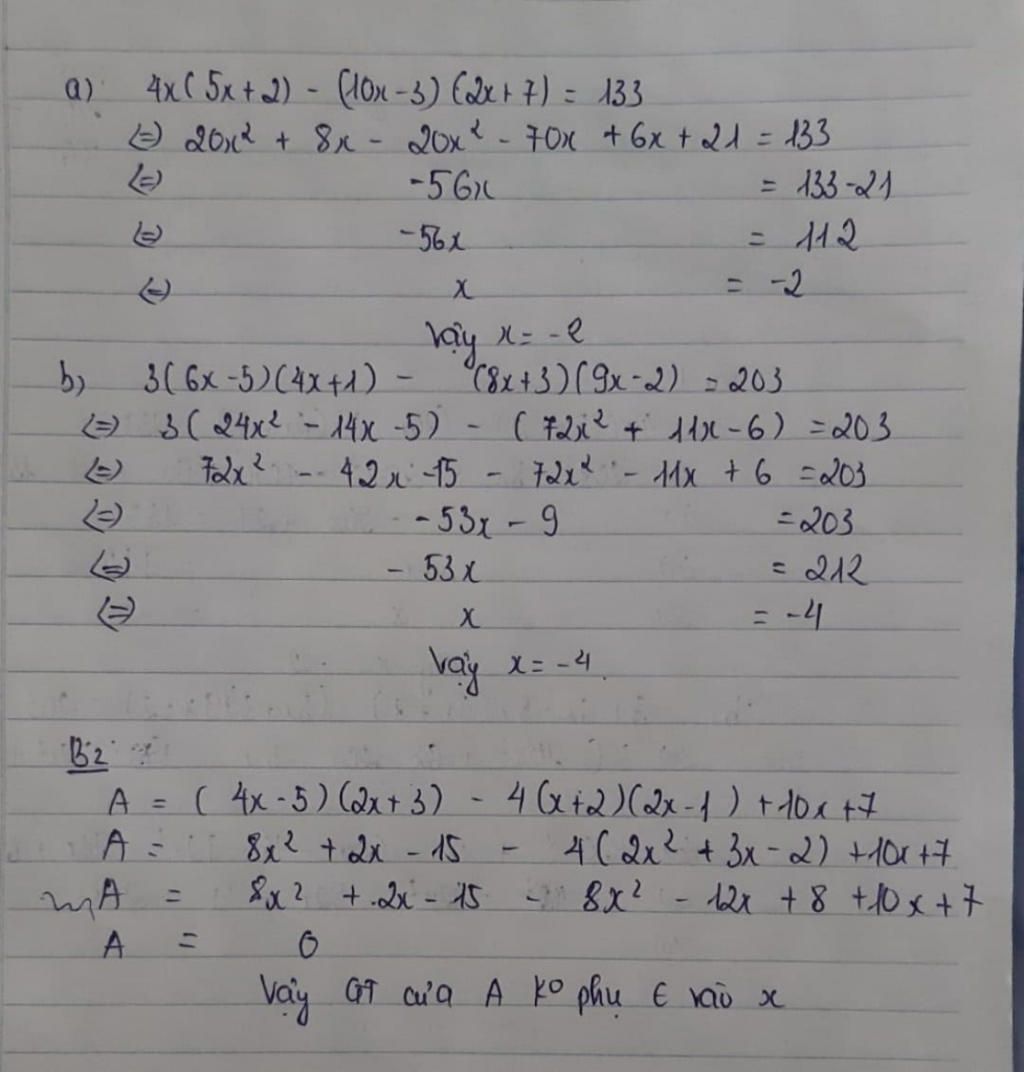 a) 4x(5x+2) - (10x-3)(2x+7) = 133
<=> 20x² + 8x - 20x² - 70x + 6x + 21 = 133
<=> -56x = 133-21
<=> -56x = 112
<=> x = -2
Vậy x = -2
b) 3(6x-5)(4x+1) - (8x+3)(9x-2) = 203
<=> 3(24x² - 14x - 5) - (72x² + 11x - 6) = 203
<=> 72x² - 42x - 15 - 72x² - 11x + 6 = 203
<=> -53x - 9 = 203
<=> - 53x = 212
<=> x = -4
Vậy x = -4.
B2
A = (4x-5)(2x+3) - 4(x+2)(2x-1) + 10x + 7
A = 8x² + 2x - 15 - 4(2x² + 3x - 2) + 10x + 7
A = 8x² + 2x - 15 - 8x² - 12x + 8 + 10x + 7
A = 0
Vậy GT của A ko phụ ∈ vào x